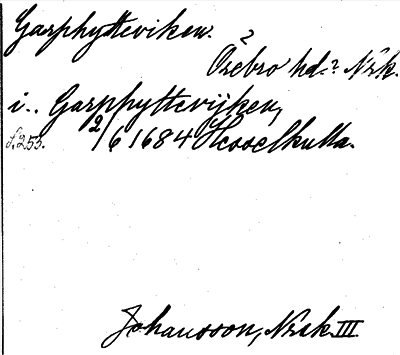 Garphytteviken.
?
Örebro hd.? Nrk.
i.. Garppyttevijken,
f. 253. 2/6 1684 Hesselkulla.
Johansson, Nrk. III